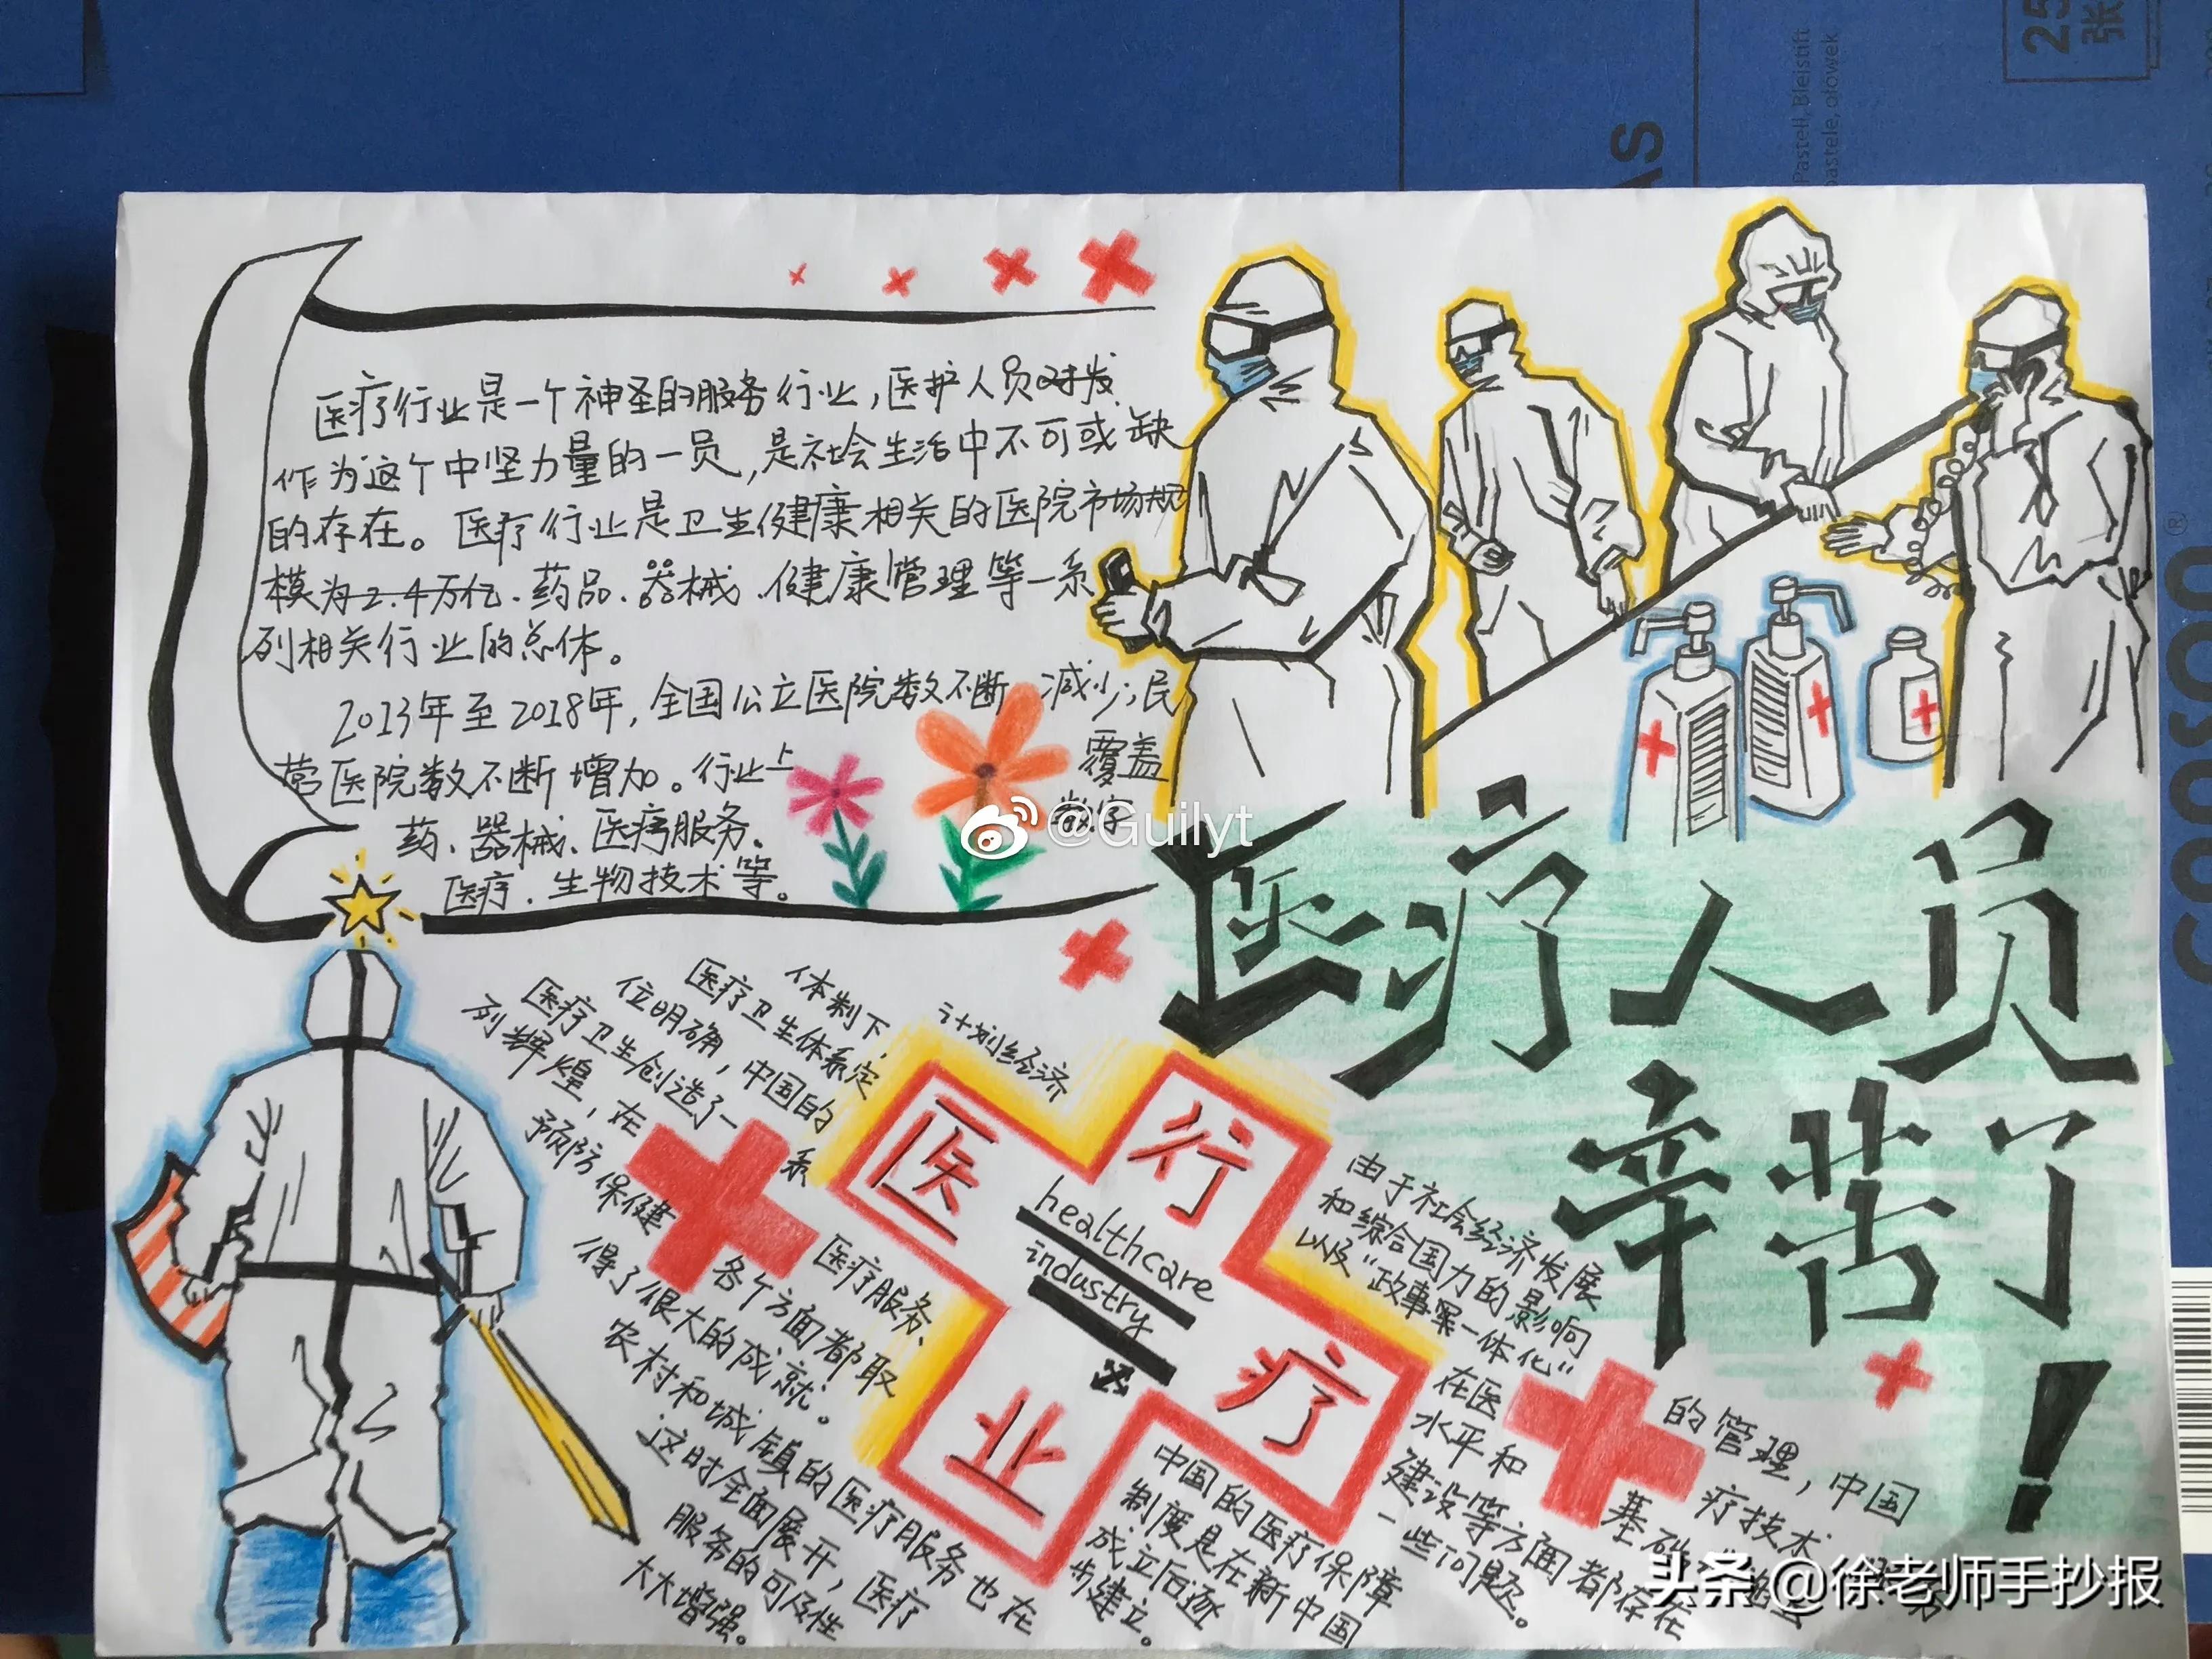 25
张
Pastell, Bleistift
pastele, ołowek
AS
canson®
医疗行业是一个神圣的服务行业,医护人员对发
作为这个中坚力量的一员,是社会生活中不可或缺
的存在。医疗行业是卫生健康相关的医院市场规
模为2.4万亿、药品、器械、健康管理等一系
列相关行业的总体。
2013年至2018年,全国公立医院数不断 减少;民
营医院数不断增加。行业上 覆盖
药、器械、医疗服务、 数字
医疗、生物技术等。
@Guilyt
医疗人员
辛苦了!
计划经济
体制下,
医疗卫生体系定
位明确,中国的
医疗卫生创造了一 系
列辉煌,在
预防保健
医疗服务、
各个方面都取
得了很大的成就。
农村和城镇的医疗服务也在
这时全面展开,医疗
服务的可及性
大大增强。
医 行
healthcare
industry
业 疗
中国的医疗保障
制度是在新中国
成立后逐
步建立。
由于社会经济发展
和综合国力的影响
以及“政事案一体化”
的管理,中国
在医 疗技术
水平和 基础
建设等方面都存在
一些问题。
头条 @徐老师手抄报